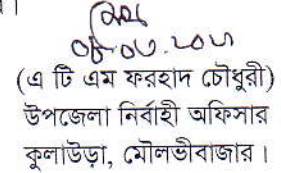 (এ টি এম ফরহাদ চৌধুরী)
উপজেলা নির্বাহী অফিসার
কুলাউড়া, মৌলভীবাজার।